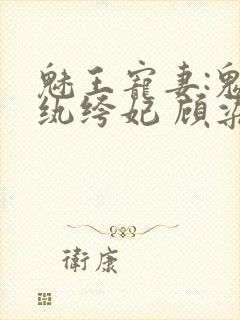 魅王寵妻:鬼
纨绔妃 顾
衛康